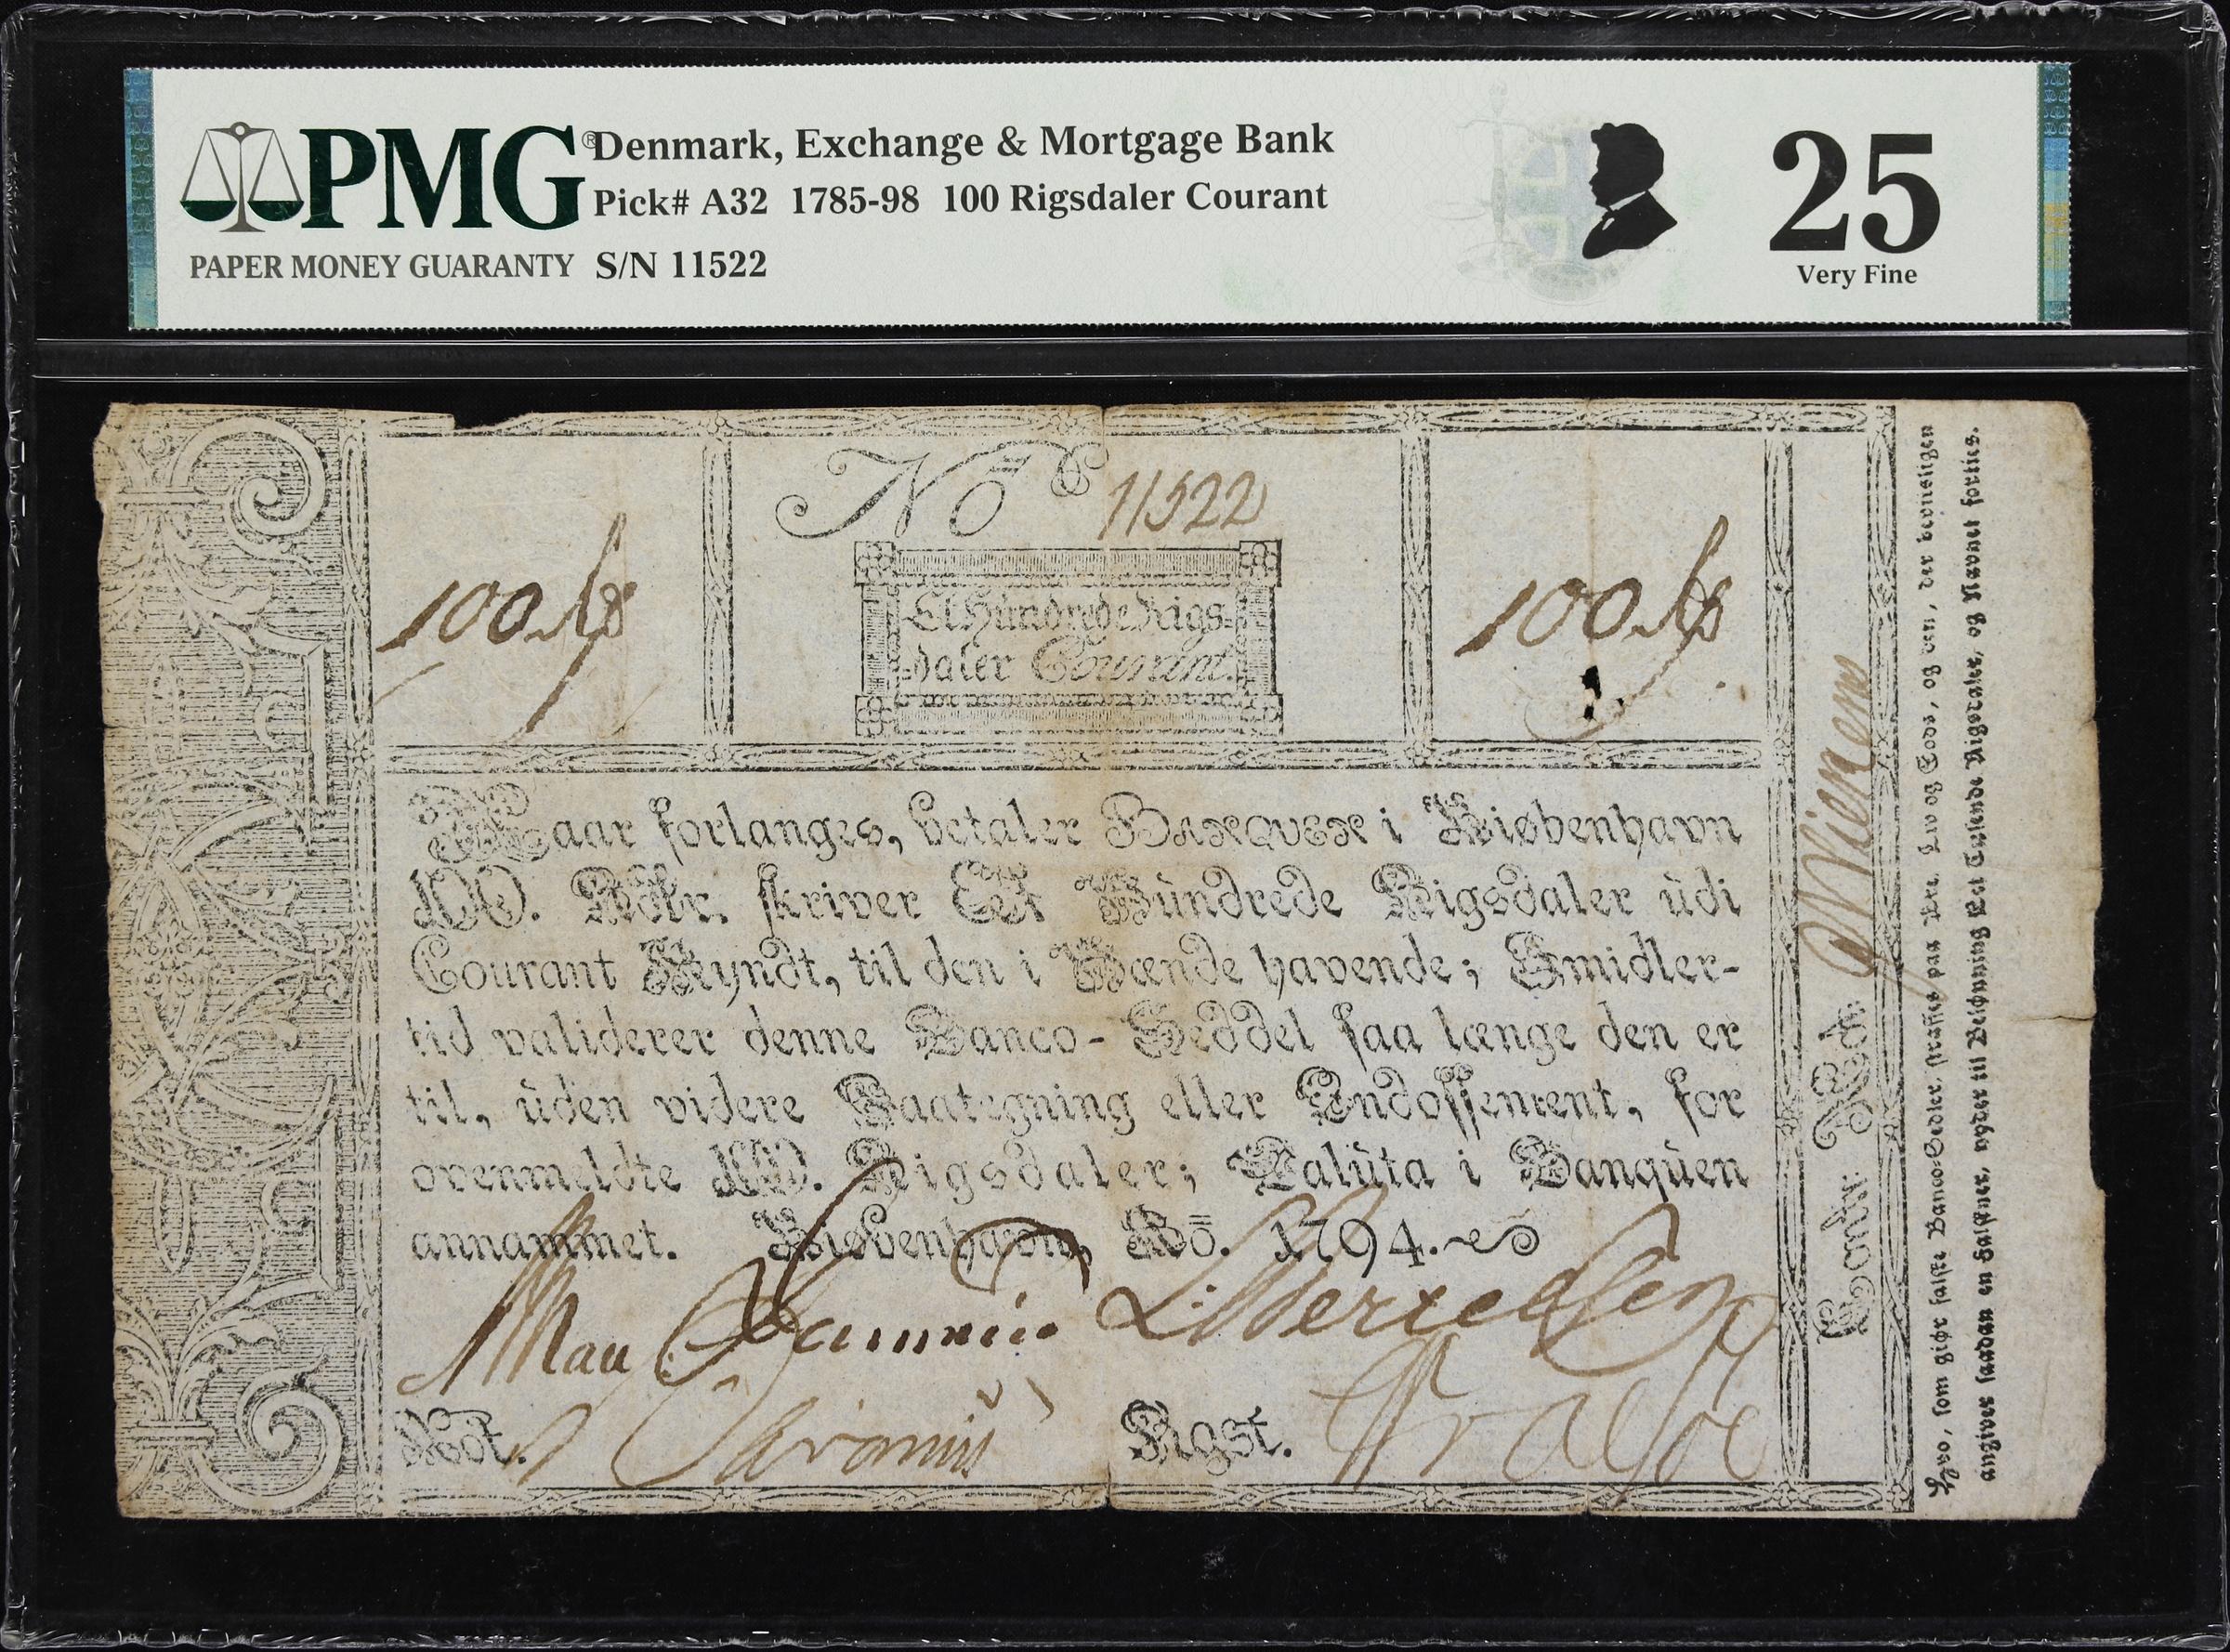 PMG®
PAPER MONEY GUARANTY
Denmark, Exchange & Mortgage Bank
Pick# A32 1785-98 100 Rigsdaler Courant
S/N 11522
25
Very Fine
No 11522
100
Et Hundrede Rigs-
daler Courant.
100
Naar forlanges, betaler BANQVEN i Kiøbenhavn
100. Rdlr. skriver Et Hundrede Rigsdaler udi
Courant Myndt, til den i Hænde havende; Imidler-
tid validerer denne Banco-Seddel saa længe den er
til, uden videre Paategning eller Endossement, for
ovenmeldte 100. Rigsdaler; Valuta i Banquen
annammet. Kiøbenhavn, Ao. 1794.
Not.
Rgst.
Conf.
Hvo, som giør falske Banco-Sedler, straffes paa Ære, Liv og Gods, og den, der beviisligen
angiver saadan en Falskner, nyder til Belønning Eet Tusende Rigsdaler, og Navnet forties.